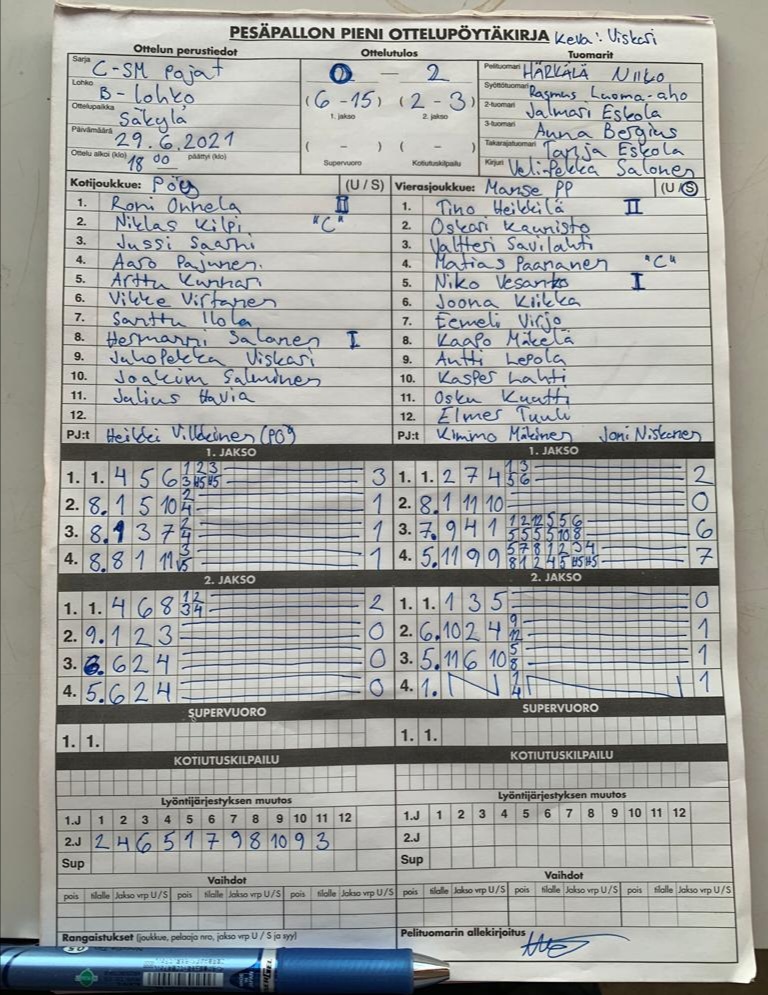 PESÄPALLON PIENI OTTELUPÖYTÄKIRJA Keva: Viskari
Ottelun perustiedot
Sarja C-SM Pojat
Lohko B-Lohko
Ottelupaikka Säkylä
Päivämäärä 29.6.2021
Ottelu alkoi (klo) 18 00 päättyi (klo)
Ottelutulos
0 - 2
(6-15) (2-3)
1. jakso 2. jakso
( - ) ( - )
Supervuoro Kotiutuskilpailu
Tuomarit
Pelituomari HÄRKÄLÄ Niiko
Syöttötuomari Rasmus Luoma-aho
2-tuomari Jalmari Eskola
3-tuomari Anna Bergius
Takarajatuomari Tanja Eskola
Kirjuri Veli-Pekka Salonen
Kotijoukkue: PöU (U / S)
1. Roni Onnela II
2. Niklas Kilpi "C"
3. Jussi Saarni
4. Aaro Pajunen
5. Arttu Kunnari
6. Vikke Virtanen
7. Santtu Ilola
8. Hermanni Salonen I
9. JuhoPekka Viskari
10. Joakim Salminen
11. Julius Havia
12.
PJ:t Heikki
Vierasjoukkue: Manse PP (U / S)
1. Tino Heikkilä II
2. Oskari Kaunisto
3. Valtteri Savilahti
4. Matias Paananen "C"
5. Niko Vesanko I
6. Joona Kiikka
7. Eemeli Virjo
8. Kaapo Mäkelä
9. Antti Lepola
10. Kasper Lahti
11. Osku Kuutti
12. Elmer Tuuli
PJ:t Kimmo Mäkinen Joni Niskanen
1. JAKSO
1. 1. 4 5 6 3
2. 8. 1 5 10 1
3. 8. 1 3 7 1
4. 8. 8 1 11 1
2. JAKSO
1. 1. 4 6 8 2
2. 9. 1 2 3 0
3. 6 2 4 0
4. 5. 6 2 4 0
SUPERVUORO
1. 1.
KOTIUTUSKILPAILU
1. JAKSO
1. 1. 2 7 4 2
2. 8. 1 11 10 0
3. 7. 9 4 1 6
4. 5. 11 9 9 7
2. JAKSO
1. 1. 1 3 5 0
2. 6. 10 2 4 1
3. 5. 11 6 10 1
4. 1. 1
SUPERVUORO
1. 1.
KOTIUTUSKILPAILU
Lyöntijärjestyksen muutos
1.J 1 2 3 4 5 6 7 8 9 10 11 12
2.J 2 4 6 5 1 7 9 8 10 9 3
Sup
Vaihdot
pois tilalle Jakso vrp U / S pois tilalle Jakso vrp U / S pois tilalle Jakso vrp U / S
Rangaistukset (joukkue, pelaaja nro, jakso vrp U / S ja syy)
Lyöntijärjestyksen muutos
1.J 1 2 3 4 5 6 7 8 9 10 11 12
2.J
Sup
Vaihdot
pois tilalle Jakso vrp U / S pois tilalle Jakso vrp U / S pois tilalle Jakso vrp U / S
Pelituomarin allekirjoitus